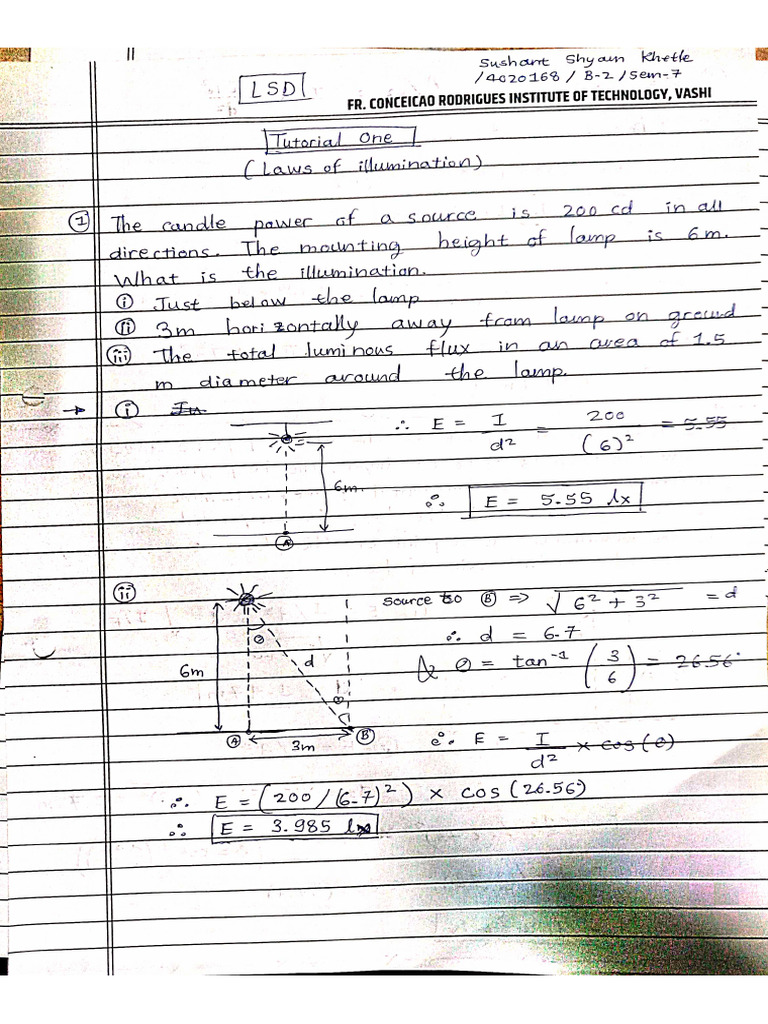 Sushant Shyam Khetle
LSD
14020168 / B-2 / Sem-7
FR. CONCEICAO RODRIGUES INSTITUTE OF TECHNOLOGY, VASHI
Tutorial One
(Laws of illumination)
① The candle power of a source is 200 cd in all
directions. The mounting height of lamp is 6m.
What is the illumination.
ⓘ Just below the lamp
ⓘⓘ 3m horizontally away from lamp on ground
ⓘⓘⓘ The total luminous flux in an area of 1.5
m diameter around the lamp.
→ ⓘ
∴ E = I/d² = 200/(6)² = 5.55
6m
∴ E = 5.55 lx
A
ⓘⓘ
source to B ⇒ √6² + 3² = d
∴ d = 6.7
θ
& θ = tan⁻¹ (3/6) = 26.56°
6m
d
θ
A
3m
B
∴ E = I/d² × cos(θ)
∴ E = (200/(6.7)²) × cos(26.56)
∴ E = 3.985 lx